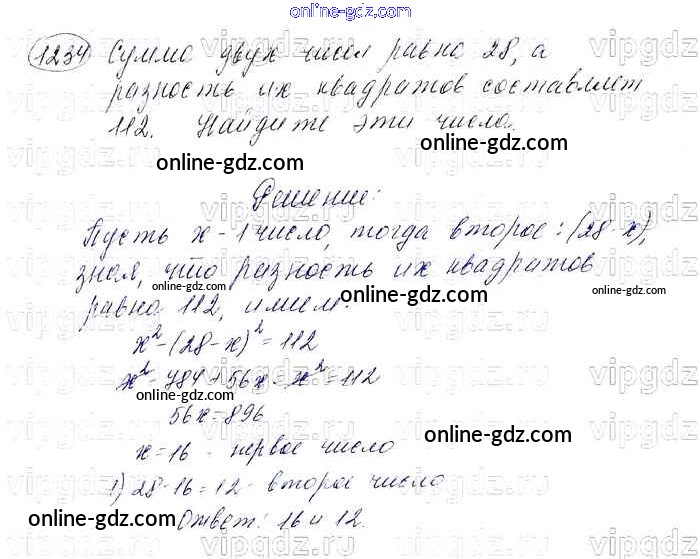 online-gdz.com
1234 Сумма двух чисел равна 28, а
разность их квадратов составляет
112. Найдите эти числа.
online-gdz.com
online-gdz.com
Решение:
Пусть х - 1 число, тогда второе: (28-х),
зная, что разность их квадратов
online-gdz.com
online-gdz.com
online-gdz.com
равна 112, имеем:
x² - (28 - x)² = 112
x² - 784 + 56x - x² = 112
online-gdz.com
56x = 896
online-gdz.com
x = 16 - первое число
1) 28 - 16 = 12 - второе число
online-gdz.com
online-gdz.com
Ответ: 16 и 12.
vipgdz.ru